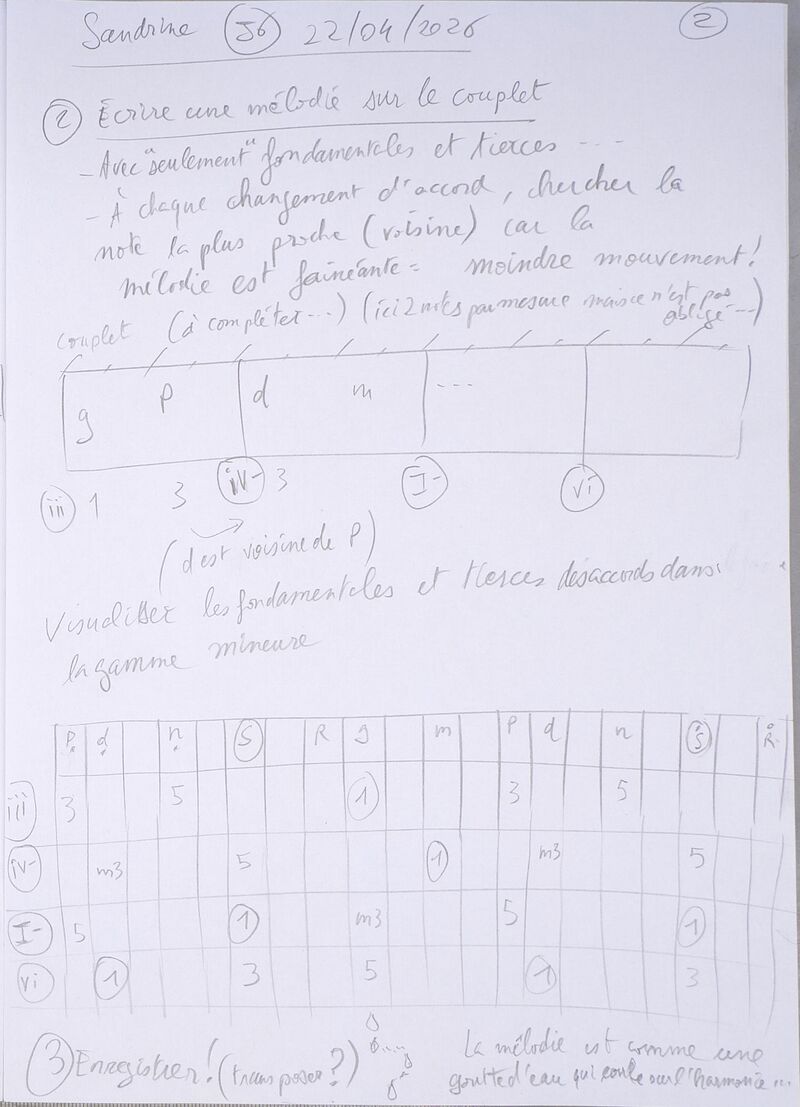 Sandrine 56 22/04/2026 2
2 Écrire une mélodie sur le couplet
- Avec "seulement" fondamentales et tierces ...
- À chaque changement d'accord, chercher la
note la plus proche (voisine) car la
mélodie est fainéante = moindre mouvement!
couplet (à compléter...) (ici 2 notes par mesure mais ce n'est pas
obligé ...)
g P d m ...
iii 1 3 iv- 3 I- vi
(d est voisine de P)
Visualiser les fondamentales et tierces des accords dans
la gamme mineure
P d n S R g m P d n S R
iii 3 5 1 3 5
iv- m3 5 1 m3 5
I- 5 1 m3 5 1
vi 1 3 5 1 3
3 Enregistrer! (transposer?)
La mélodie est comme une
goutte d'eau qui coule sur l'harmonie ...